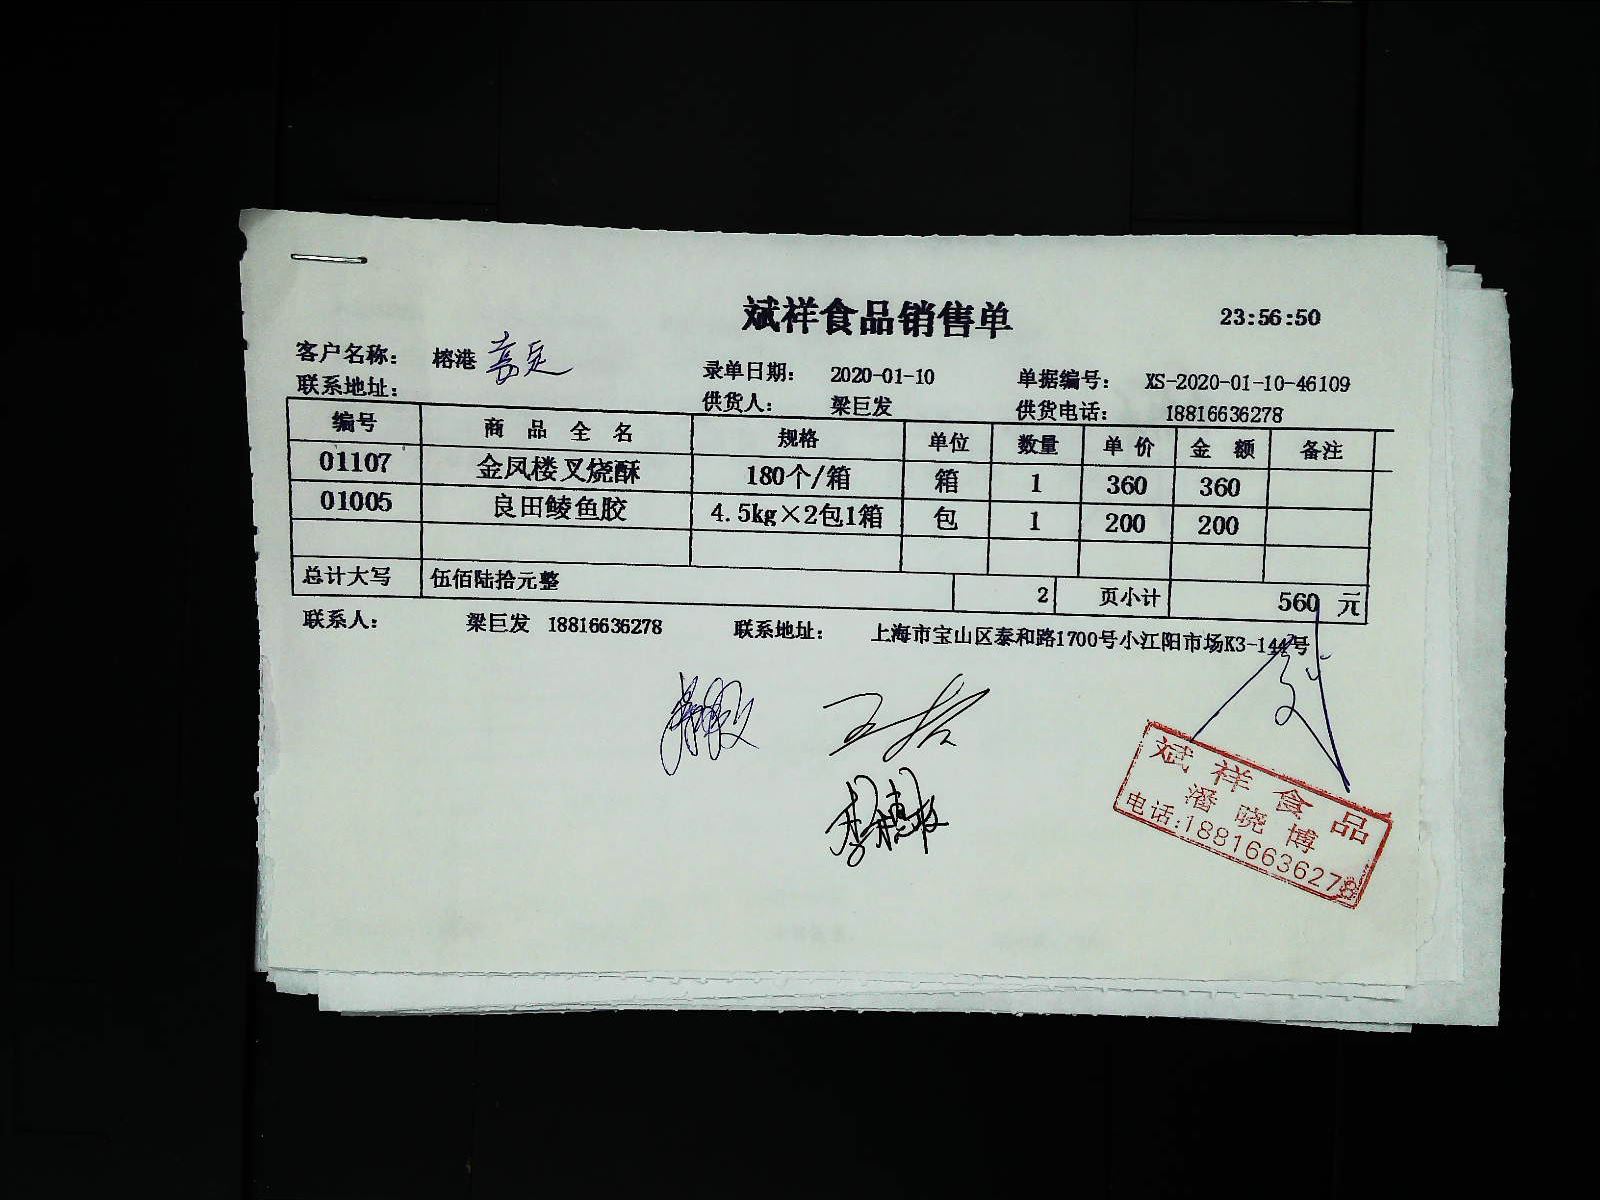 斌祥食品销售单 23:56:50
客户名称： 榕港 嘉定 录单日期： 2020-01-10 单据编号： XS-2020-01-10-46109
联系地址： 供货人： 梁巨发 供货电话： 18816636278
编号 商品全名 规格 单位 数量 单价 金额 备注
01107 金凤楼叉烧酥 180个/箱 箱 1 360 360
01005 良田鲮鱼胶 4.5kg×2包1箱 包 1 200 200
总计大写 伍佰陆拾元整 2 页小计 560 元
联系人： 梁巨发 18816636278 联系地址： 上海市宝山区泰和路1700号小江阳市场K3-144号
斌祥食品
潘晓博
电话:18816636278